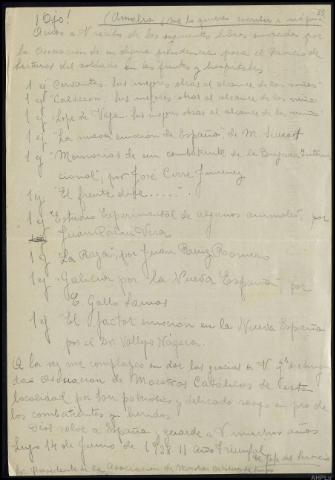 ¡Ojo!
Acuso a V recibo de los siguientes libros enviados por
la Asociación de su digna presidencia para el Servicio de
lecturas del soldado en los frentes y hospitales
1 ej "Cervantes. Sus mejores obras al alcance de los niños"
1 ej "Calderon. Sus mejores obras al alcance de los niños
1 ej "Lope de Vega. Sus mejores obras al alcance de los niños
1 ej "La nueva emoción de España" de M.
1 ej "Memorias de un combatiente de la Brigada Interna
cional", por José Cirre Jimenez
1 ej "El frente dice......."
1 ej "Estudio Experimental de algunos animales", por
Juan Vera
1 ej "La Raza", por Juan Romero
1 ej "Galicia por la Nueva España", por
E. Gallo Lamas
1 ej El factor emoción en la Nueva España
por el Dr. Vallejo Nágera.
A la vez me complazco en dar las gracias a V y
Asociación de Maestros Católicos de esta
localidad por tan patriótico y delicado rasgo en pro de
los combatientes y heridos.
Dios salve a España, y guarde a V. muchos años
Lugo 14 de Junio de 1938. II Año Triunfal
El Jefe del Servicio
Sr Presidente de la Asociación de Maestros Católicos de Lugo